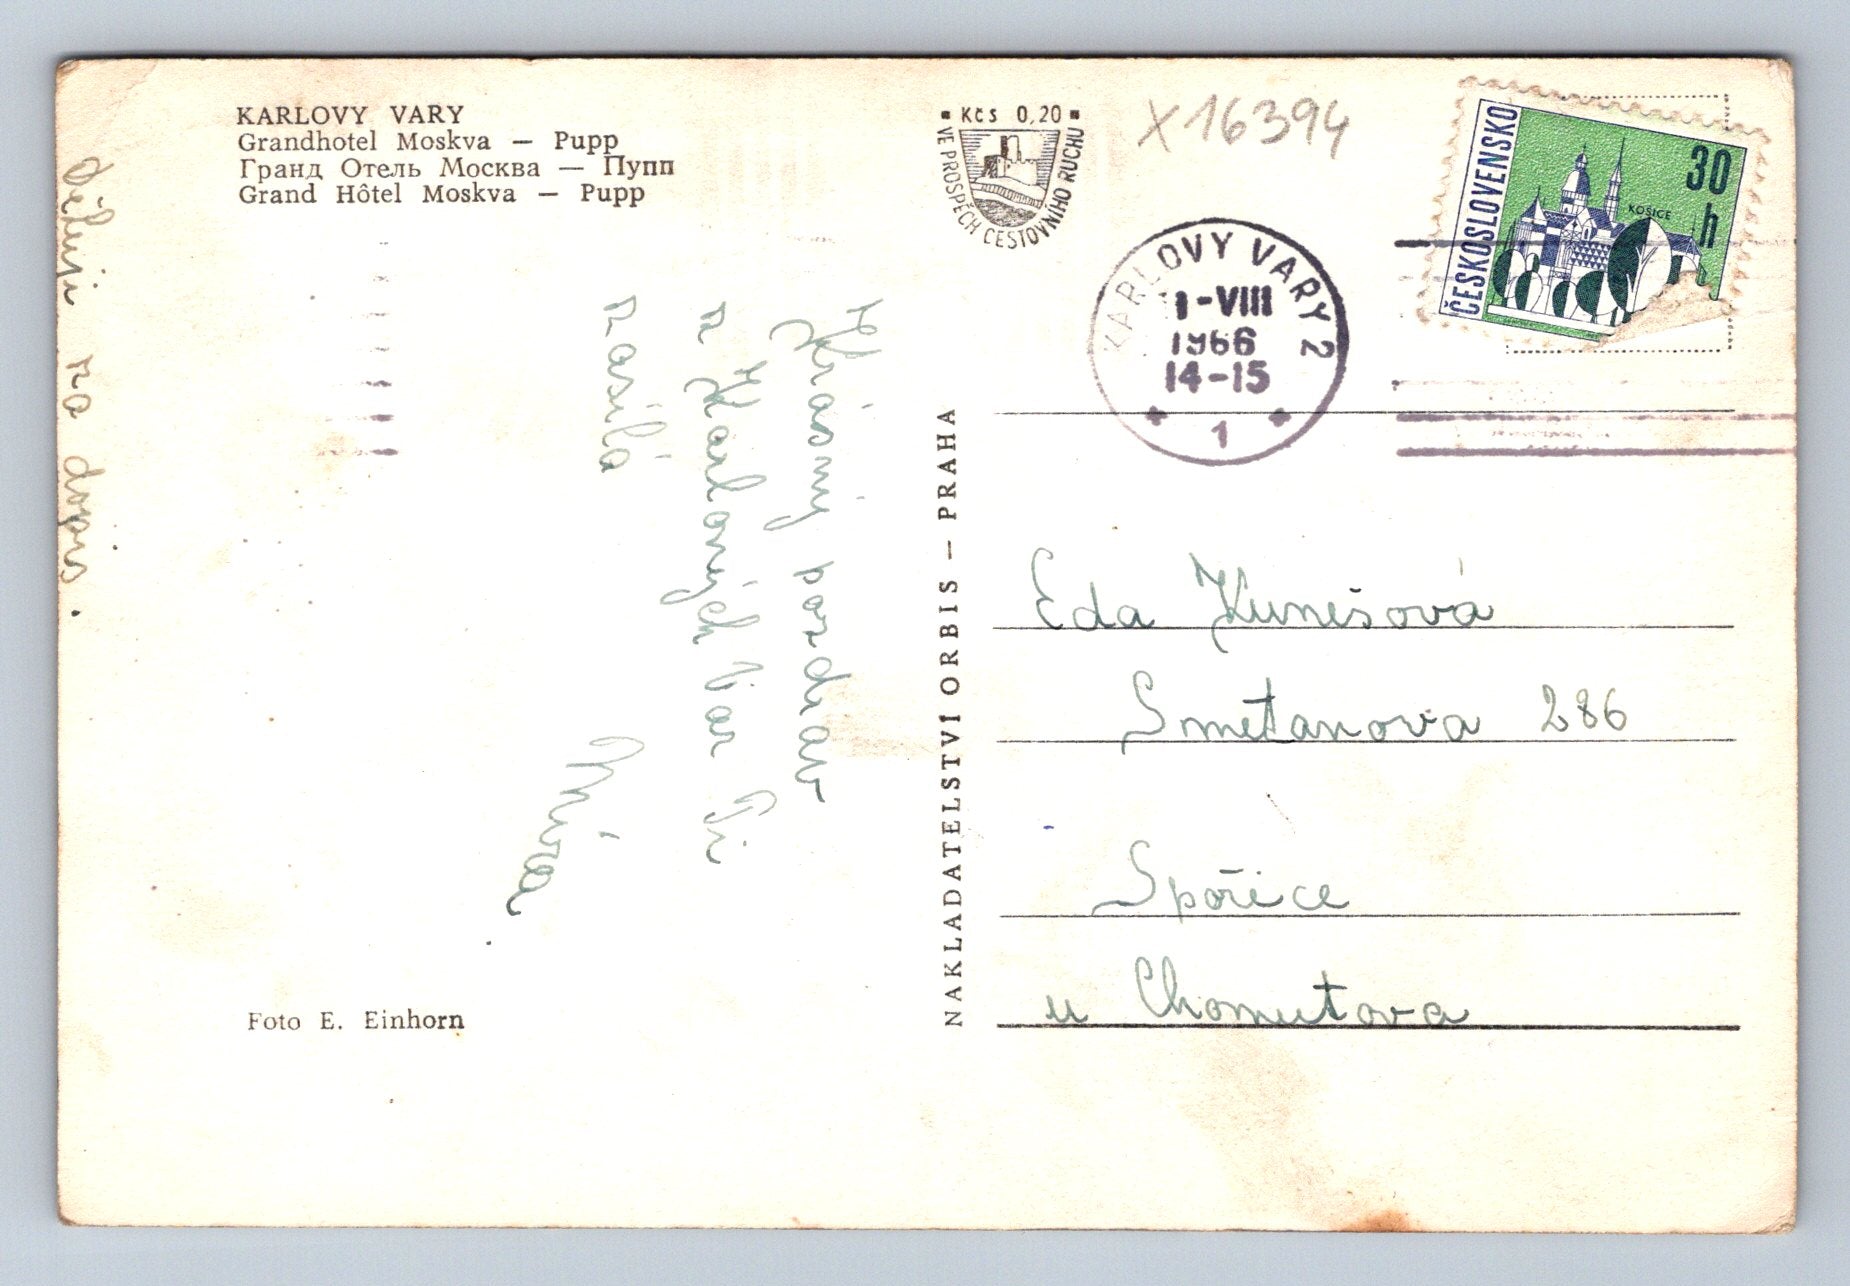 KARLOVY VARY
Grandhotel Moskva — Pupp
Гранд Отель Москва — Пупп
Grand Hôtel Moskva — Pupp
Děkuji za dopis.
Krásný pozdrav
z Karlových Var Ti
zasílá
Míra
Foto E. Einhorn
NAKLADATELSTVÍ ORBIS — PRAHA
Kčs 0,20
VE PROSPĚCH CESTOVNÍHO RUCHU
X16394
ČESKOSLOVENSKO
30
h
KOŠICE
KARLOVY VARY 2
1-VIII
1966
14-15
1
Eda Kunešová
Smetanova 286
Spořice
u Chomutova